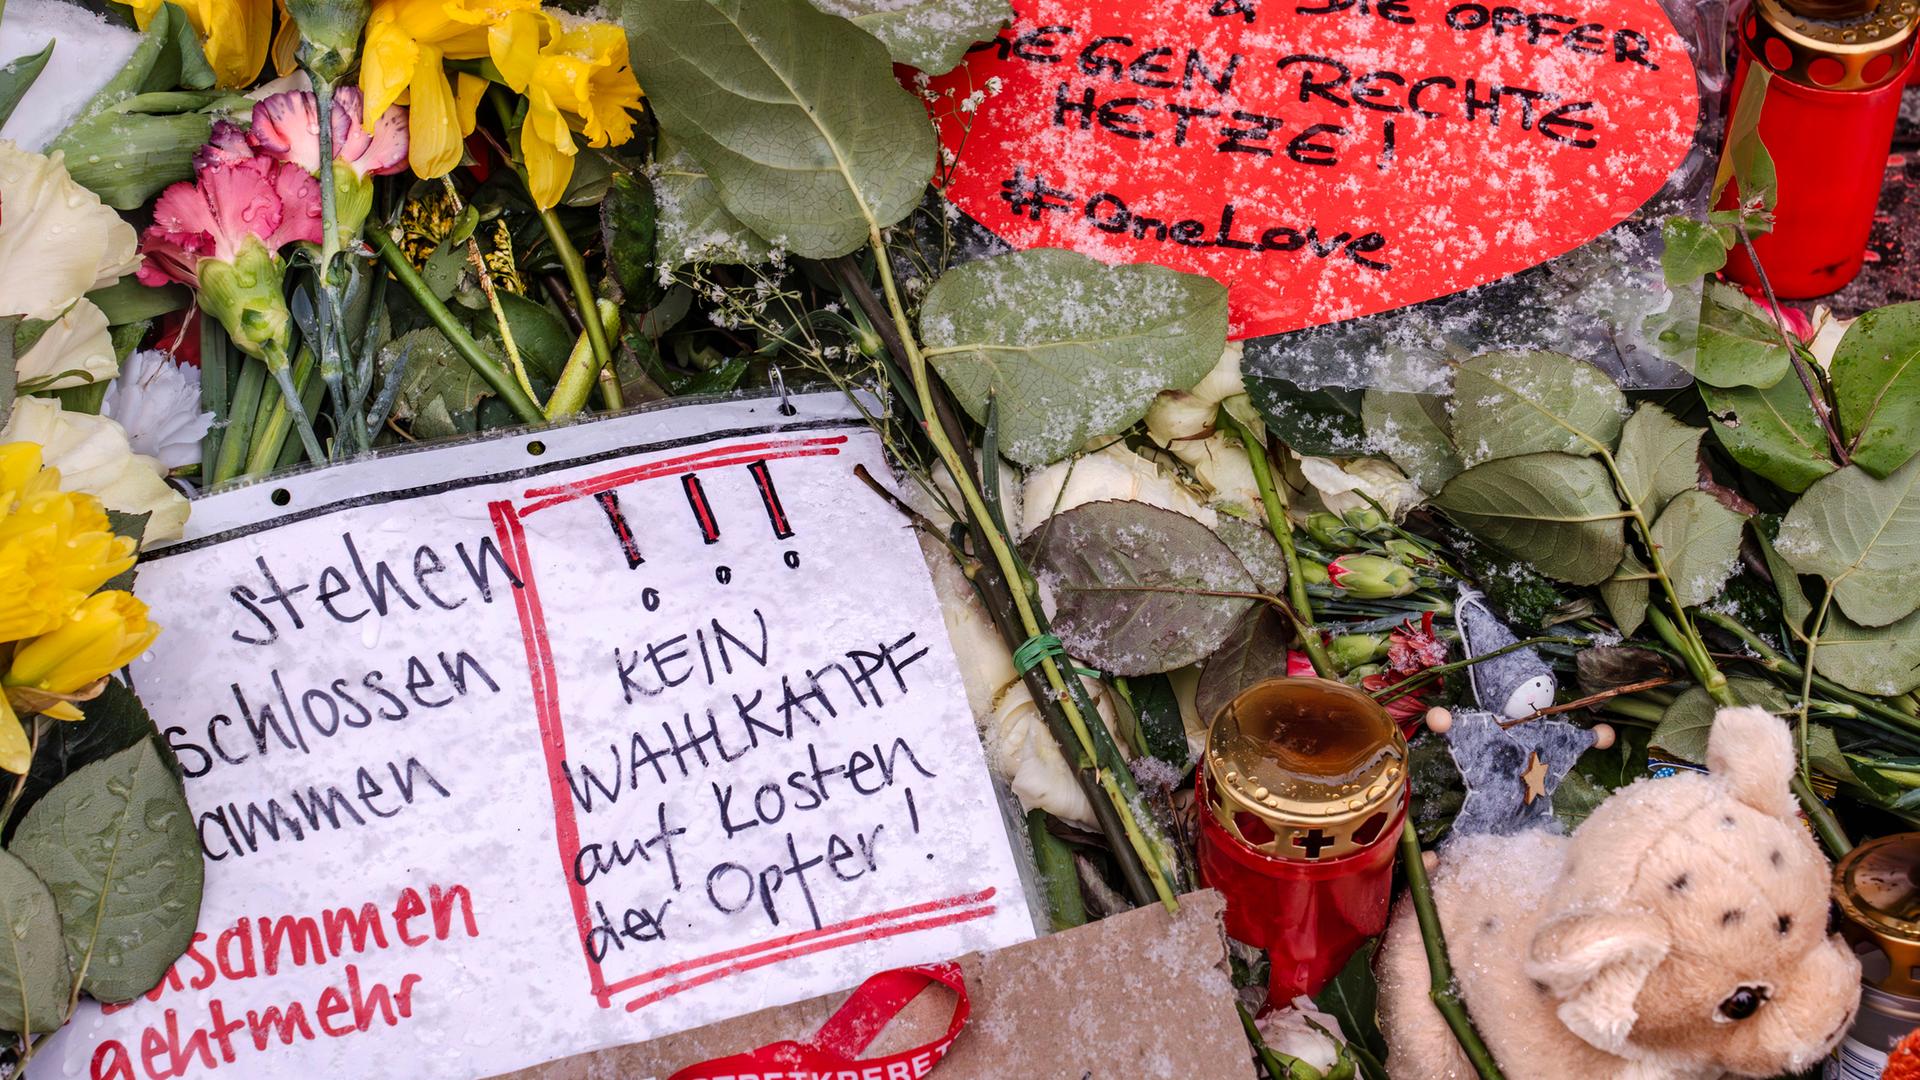 & DIE OPFER
GEGEN RECHTE
HETZE!
#OneLove
stehen
schlossen
ammen
usammen
gehtmehr
!!!
KEIN
WAHLKAMPF
auf Kosten
der Opfer!